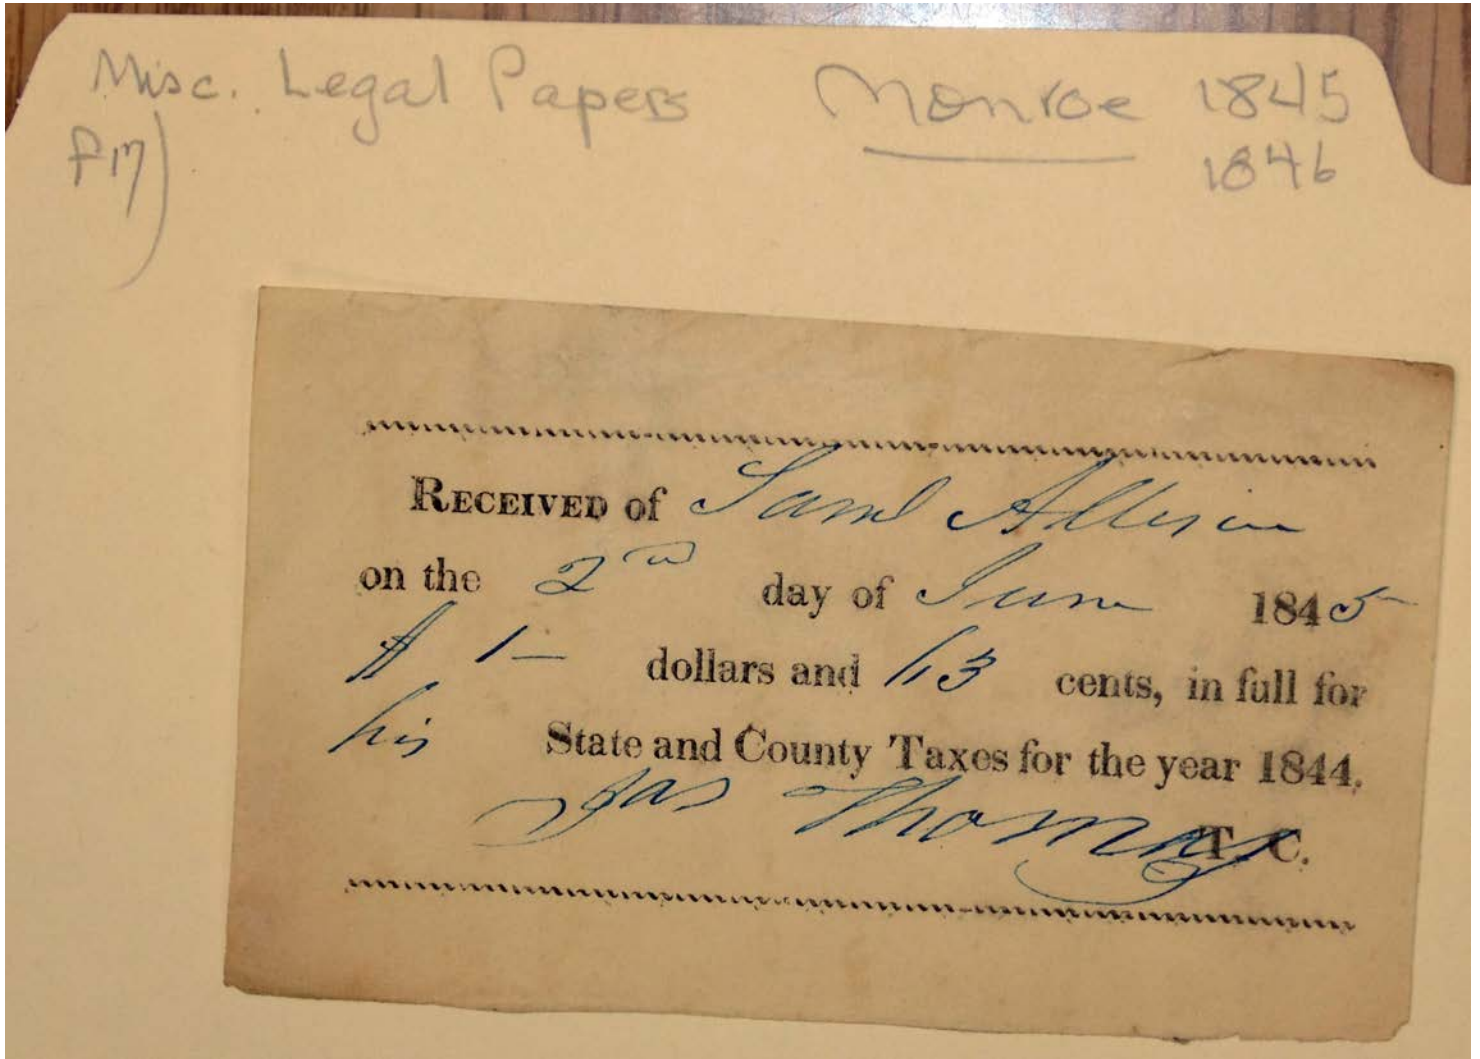 Misc. Legal Papers Monroe 1845
F17) 1846
RECEIVED of Saml Allison
on the 2nd day of June 1845
$ 1 — dollars and 63 cents, in full for
his State and County Taxes for the year 1844.
Jas Thomas T. C.